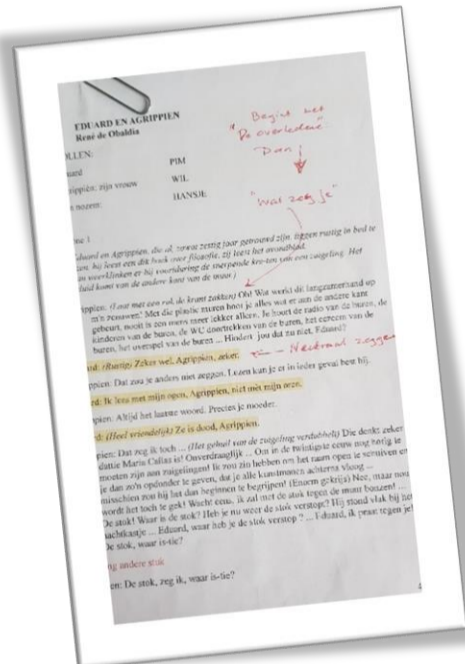 EDUARD EN AGRIPPIEN
René de Obaldia
Begint met
"De overledene"
Dan
"wat zeg je"
OLLEN:
uard PIM
rippien: zijn vrouw WIL
e nozem: HANSJE
ne 1
Eduard en Agrippien, die al, zowat zestig jaar getrouwd zijn, liggen rustig in bed te
hij leest een dik boek over filosofie, zij leest het avondblad.
en weerklinken er bij voortduring de snerpende kreten van een zuigeling. Het
luid komt van de andere kant van de muur.)
ppien: (Laat met een ruk de krant zakken) Oh! Wat werkt dit langzamerhand op
m'n zenuwen! Met die plastic muren hoor je alles wat er aan de andere kant
gebeurt, nooit is een mens meer lekker alleen. Je hoort de radio van de buren, de
kinderen van de buren, de WC doortrekken van de buren, het van de
buren, het overspel van de buren ... Hindert jou dat zu niet, Eduard?
rd: (Rustig) Zeker wel, Agrippien, zeker.
Neutraal zeggen
ppien: Dat zou je anders niet zeggen. Lezen kun je er in ieder geval best bij.
rd: Ik lees met mijn ogen, Agrippien, niet met mijn oren.
pien: Altijd het laatste woord. Precies je moeder.
rd: (Heel vriendelijk) Ze is dood, Agrippien.
pien: Dat zeg ik toch ... (Het gehuil van de zuigeling verdubbelt) Die denkt zeker
datie Maria Callas is! Onverdraaglijk ... Om in de twintigste eeuw nog horig te
moeten zijn aan zuigelingen! Ik zou zin hebben om het raam open te schuiven en
je dan zo'n opdonder te geven, dat je alle kunstmanen achterna vloog ...
misschien zou hij het dan beginnen te begrijpen! (Enorm gekrijs) Nee, maar nou
wordt het toch te gek! Wacht eens, ik zal met de stok tegen de muur bonzen! ...
De stok! Waar is de stok? Heb je nu weer de stok verstopt? Hij stond vlak bij het
nachtkastje ... Eduard, waar heb je de stok verstopt ? ... Eduard, ik praat tegen je!
De stok, zeg ik, waar is-tie?
ng andere stuk
en: De stok, zeg ik, waar is-tie?
4